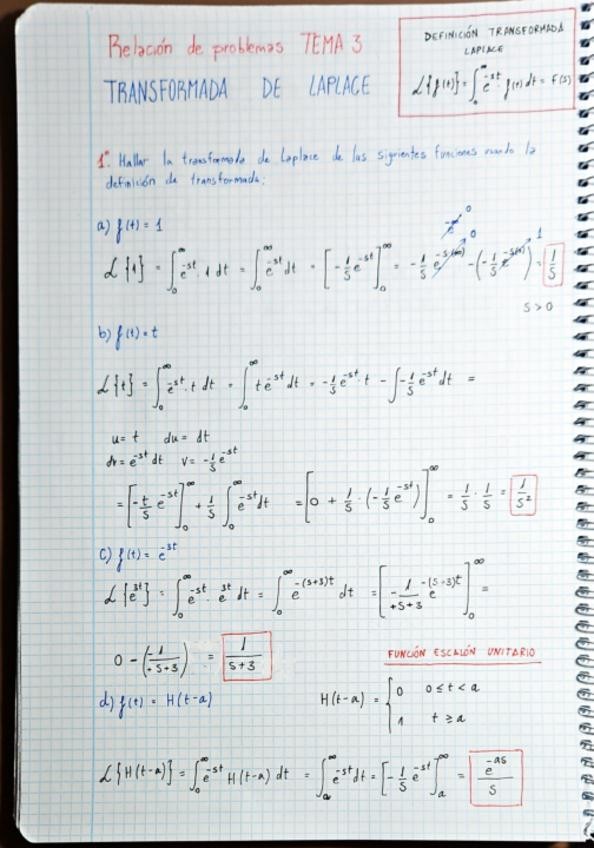 Relación de problemas TEMA 3
TRANSFORMADA DE LAPLACE
DEFINICIÓN TRANSFORMADA
LAPLACE
ℒ{f(t)} = ∫₀^∞ e^{-st} · f(t) dt = F(s)
1º. Hallar la transformada de Laplace de las siguientes funciones usando la
definición de transformada:
a) f(t) = 1
ℒ{1} = ∫₀^∞ e^{-st} · 1 dt = ∫₀^∞ e^{-st} dt = [-1/s e^{-st}]₀^∞ = -1/s e^{-s(∞)} - (-1/s e^{-s(0)}) = 1/s
e^{-∞} 0
0
1
s > 0
b) f(t) = t
ℒ{t} = ∫₀^∞ e^{-st} · t dt = ∫₀^∞ t e^{-st} dt = -1/s e^{-st} · t - ∫ -1/s e^{-st} dt =
u = t du = dt
dv = e^{-st} dt v = -1/s e^{-st}
= [-t/s e^{-st}]₀^∞ + 1/s ∫₀^∞ e^{-st} dt = [0 + 1/s · (-1/s e^{-st})]₀^∞ = 1/s · 1/s = 1/s²
c) f(t) = e^{-3t}
ℒ{e^{3t}} = ∫₀^∞ e^{-st} · e^{3t} dt = ∫₀^∞ e^{-(s+3)t} dt = [-1/(+s+3) e^{-(s+3)t}]₀^∞ =
0 - (-1/(+s+3)) = 1/(s+3)
FUNCIÓN ESCALÓN UNITARIO
d) f(t) = H(t-a)
H(t-a) = { 0 0 ≤ t < a
1 t ≥ a
ℒ{H(t-a)} = ∫₀^∞ e^{-st} H(t-a) dt = ∫ₐ^∞ e^{-st} dt = [-1/s e^{-st}]ₐ^∞ = e^{-as}/s